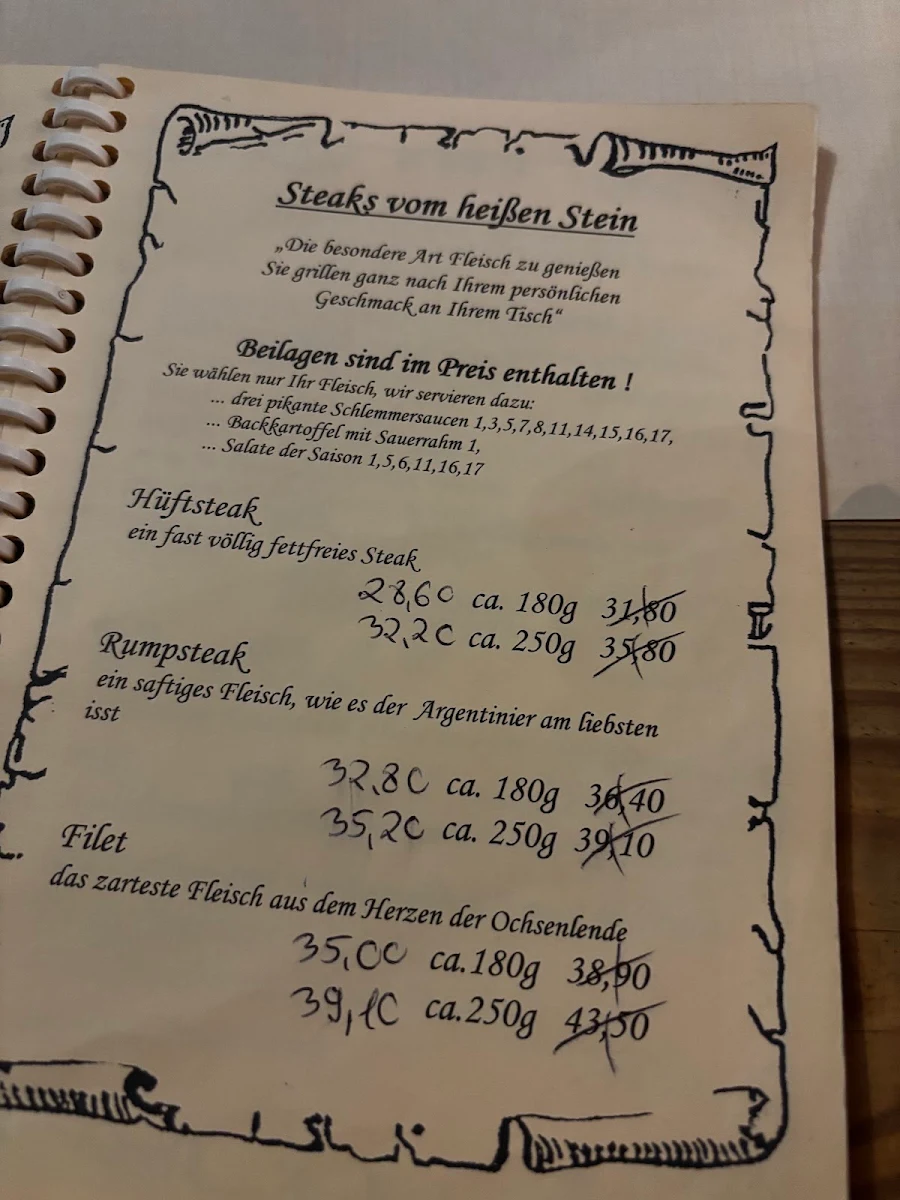 Steaks vom heißen Stein
„Die besondere Art Fleisch zu genießen
Sie grillen ganz nach Ihrem persönlichen
Geschmack an Ihrem Tisch“
Beilagen sind im Preis enthalten !
Sie wählen nur Ihr Fleisch, wir servieren dazu:
... drei pikante Schlemmersaucen 1,3,5,7,8,11,14,15,16,17,
... Backkartoffel mit Sauerrahm 1,
... Salate der Saison 1,5,6,11,16,17
Hüftsteak
ein fast völlig fettfreies Steak
28,60 ca. 180g 31,80
32,20 ca. 250g 35,80
Rumpsteak
ein saftiges Fleisch, wie es der Argentinier am liebsten
isst
32,80 ca. 180g 36,40
35,20 ca. 250g 39,10
Filet
das zarteste Fleisch aus dem Herzen der Ochsenlende
35,00 ca.180g 38,90
39,10 ca.250g 43,50